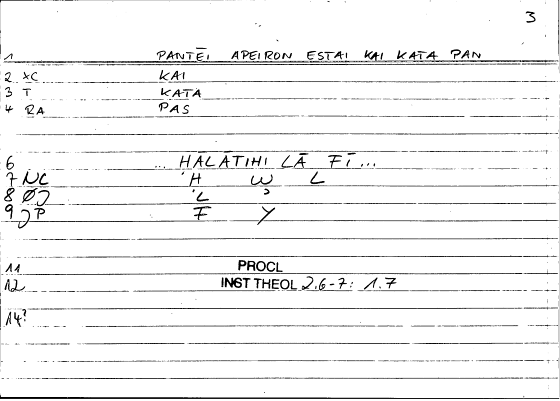 3
1 PANTĒI APEIRON ESTAI KAI KATA PAN
2 XC KAI
3 T KATA
4 RA PAS
6 ... HĀLĀTIHI LĀ FĪ ...
7 NC 'H W L
8 'L ɔ
9 F Y
11 PROCL
12 INST THEOL 2.6-7: 1.7
14?